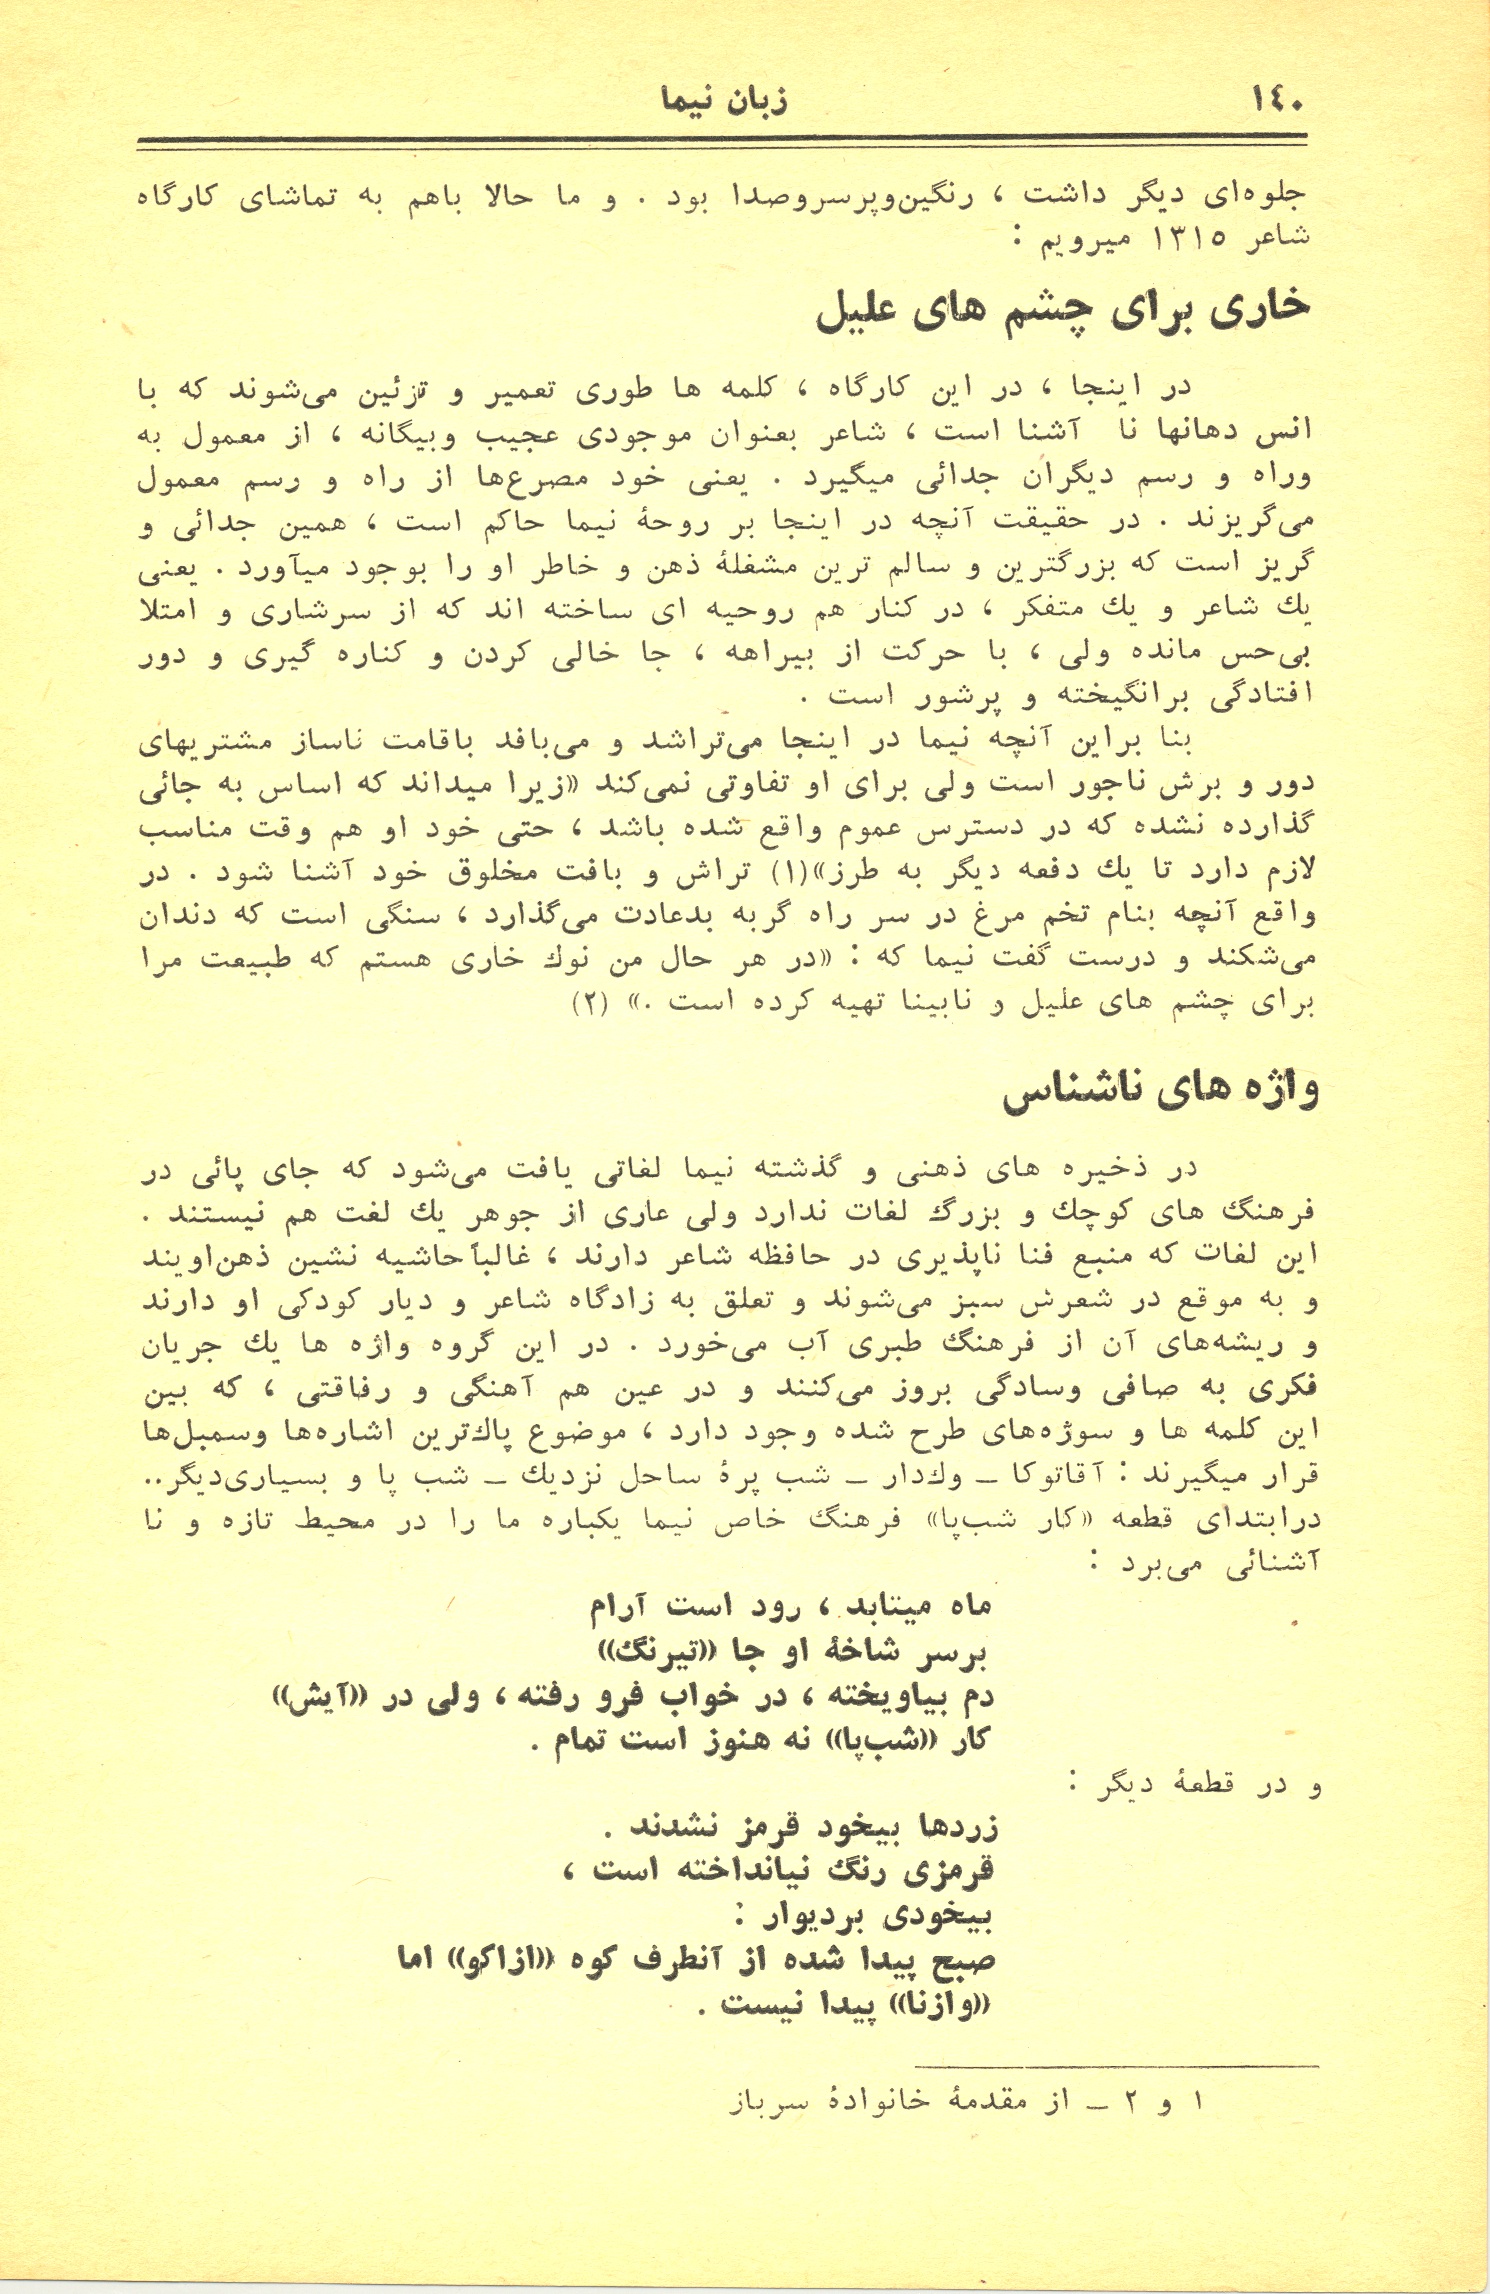 ۱٤۰
زبان نیما
جلوه‌ای دیگر داشت ، رنگین‌وپرسروصدا بود . و ما حالا باهم به تماشای کارگاه
شاعر ۱۳۱۵ میرویم :
خاری برای چشم های علیل
در اینجا ، در این کارگاه ، کلمه ها طوری تعمیر و تزئین می‌شوند که با
انس دهانها نا آشنا است ، شاعر بعنوان موجودی عجیب وبیگانه ، از معمول به
وراه و رسم دیگران جدائی میگیرد . یعنی خود مصرع‌ها از راه و رسم معمول
می‌گریزند . در حقیقت آنچه در اینجا بر روحهٔ نیما حاکم است ، همین جدائی و
گریز است که بزرگترین و سالم ترین مشغلهٔ ذهن و خاطر او را بوجود میآورد . یعنی
یك شاعر و یك متفکر ، در کنار هم روحیه ای ساخته اند که از سرشاری و امتلا
بی‌حس مانده ولی ، با حرکت از بیراهه ، جا خالی کردن و کناره گیری و دور
افتادگی برانگیخته و پرشور است .
بنا براین آنچه نیما در اینجا می‌تراشد و می‌بافد باقامت ناساز مشتریهای
دور و برش ناجور است ولی برای او تفاوتی نمی‌کند «زیرا میداند که اساس به جائی
گذارده نشده که در دسترس عموم واقع شده باشد ، حتی خود او هم وقت مناسب
لازم دارد تا یك دفعه دیگر به طرز»(۱) تراش و بافت مخلوق خود آشنا شود . در
واقع آنچه بنام تخم مرغ در سر راه گربه بدعادت می‌گذارد ، سنگی است که دندان
می‌شکند و درست گفت نیما که : «در هر حال من نوك خاری هستم که طبیعت مرا
برای چشم های علیل و نابینا تهیه کرده است .» (۲)
واژه های ناشناس
در ذخیره های ذهنی و گذشته نیما لغاتی یافت می‌شود که جای پائی در
فرهنگ های کوچك و بزرگ لغات ندارد ولی عاری از جوهر یك لغت هم نیستند .
این لغات که منبع فنا ناپذیری در حافظه شاعر دارند ، غالباً حاشیه نشین ذهن‌اویند
و به موقع در شعرش سبز می‌شوند و تعلق به زادگاه شاعر و دیار کودکی او دارند
و ریشه‌های آن از فرهنگ طبری آب می‌خورد . در این گروه واژه ها یك جریان
فکری به صافی وسادگی بروز می‌کنند و در عین هم آهنگی و رفاقتی ، که بین
این کلمه ها و سوژه‌های طرح شده وجود دارد ، موضوع پاك‌ترین اشاره‌ها وسمبل‌ها
قرار میگیرند : آقاتوکا ــ وك‌دار ــ شب پرهٔ ساحل نزدیك ــ شب پا و بسیاری‌دیگر..
درابتدای قطعه «کار شب‌پا» فرهنگ خاص نیما یکباره ما را در محیط تازه و نا
آشنائی می‌برد :
ماه میتابد ، رود است آرام
برسر شاخهٔ او جا «تیرنگ»
دم بیاویخته ، در خواب فرو رفته ، ولی در «آیش»
کار «شب‌پا» نه هنوز است تمام .
و در قطعهٔ دیگر :
زردها بیخود قرمز نشدند .
قرمزی رنگ نیانداخته است ،
بیخودی بردیوار :
صبح پیدا شده از آنطرف کوه «ازاکو» اما
«وازنا» پیدا نیست .
۱ و ۲ ــ از مقدمهٔ خانوادهٔ سرباز